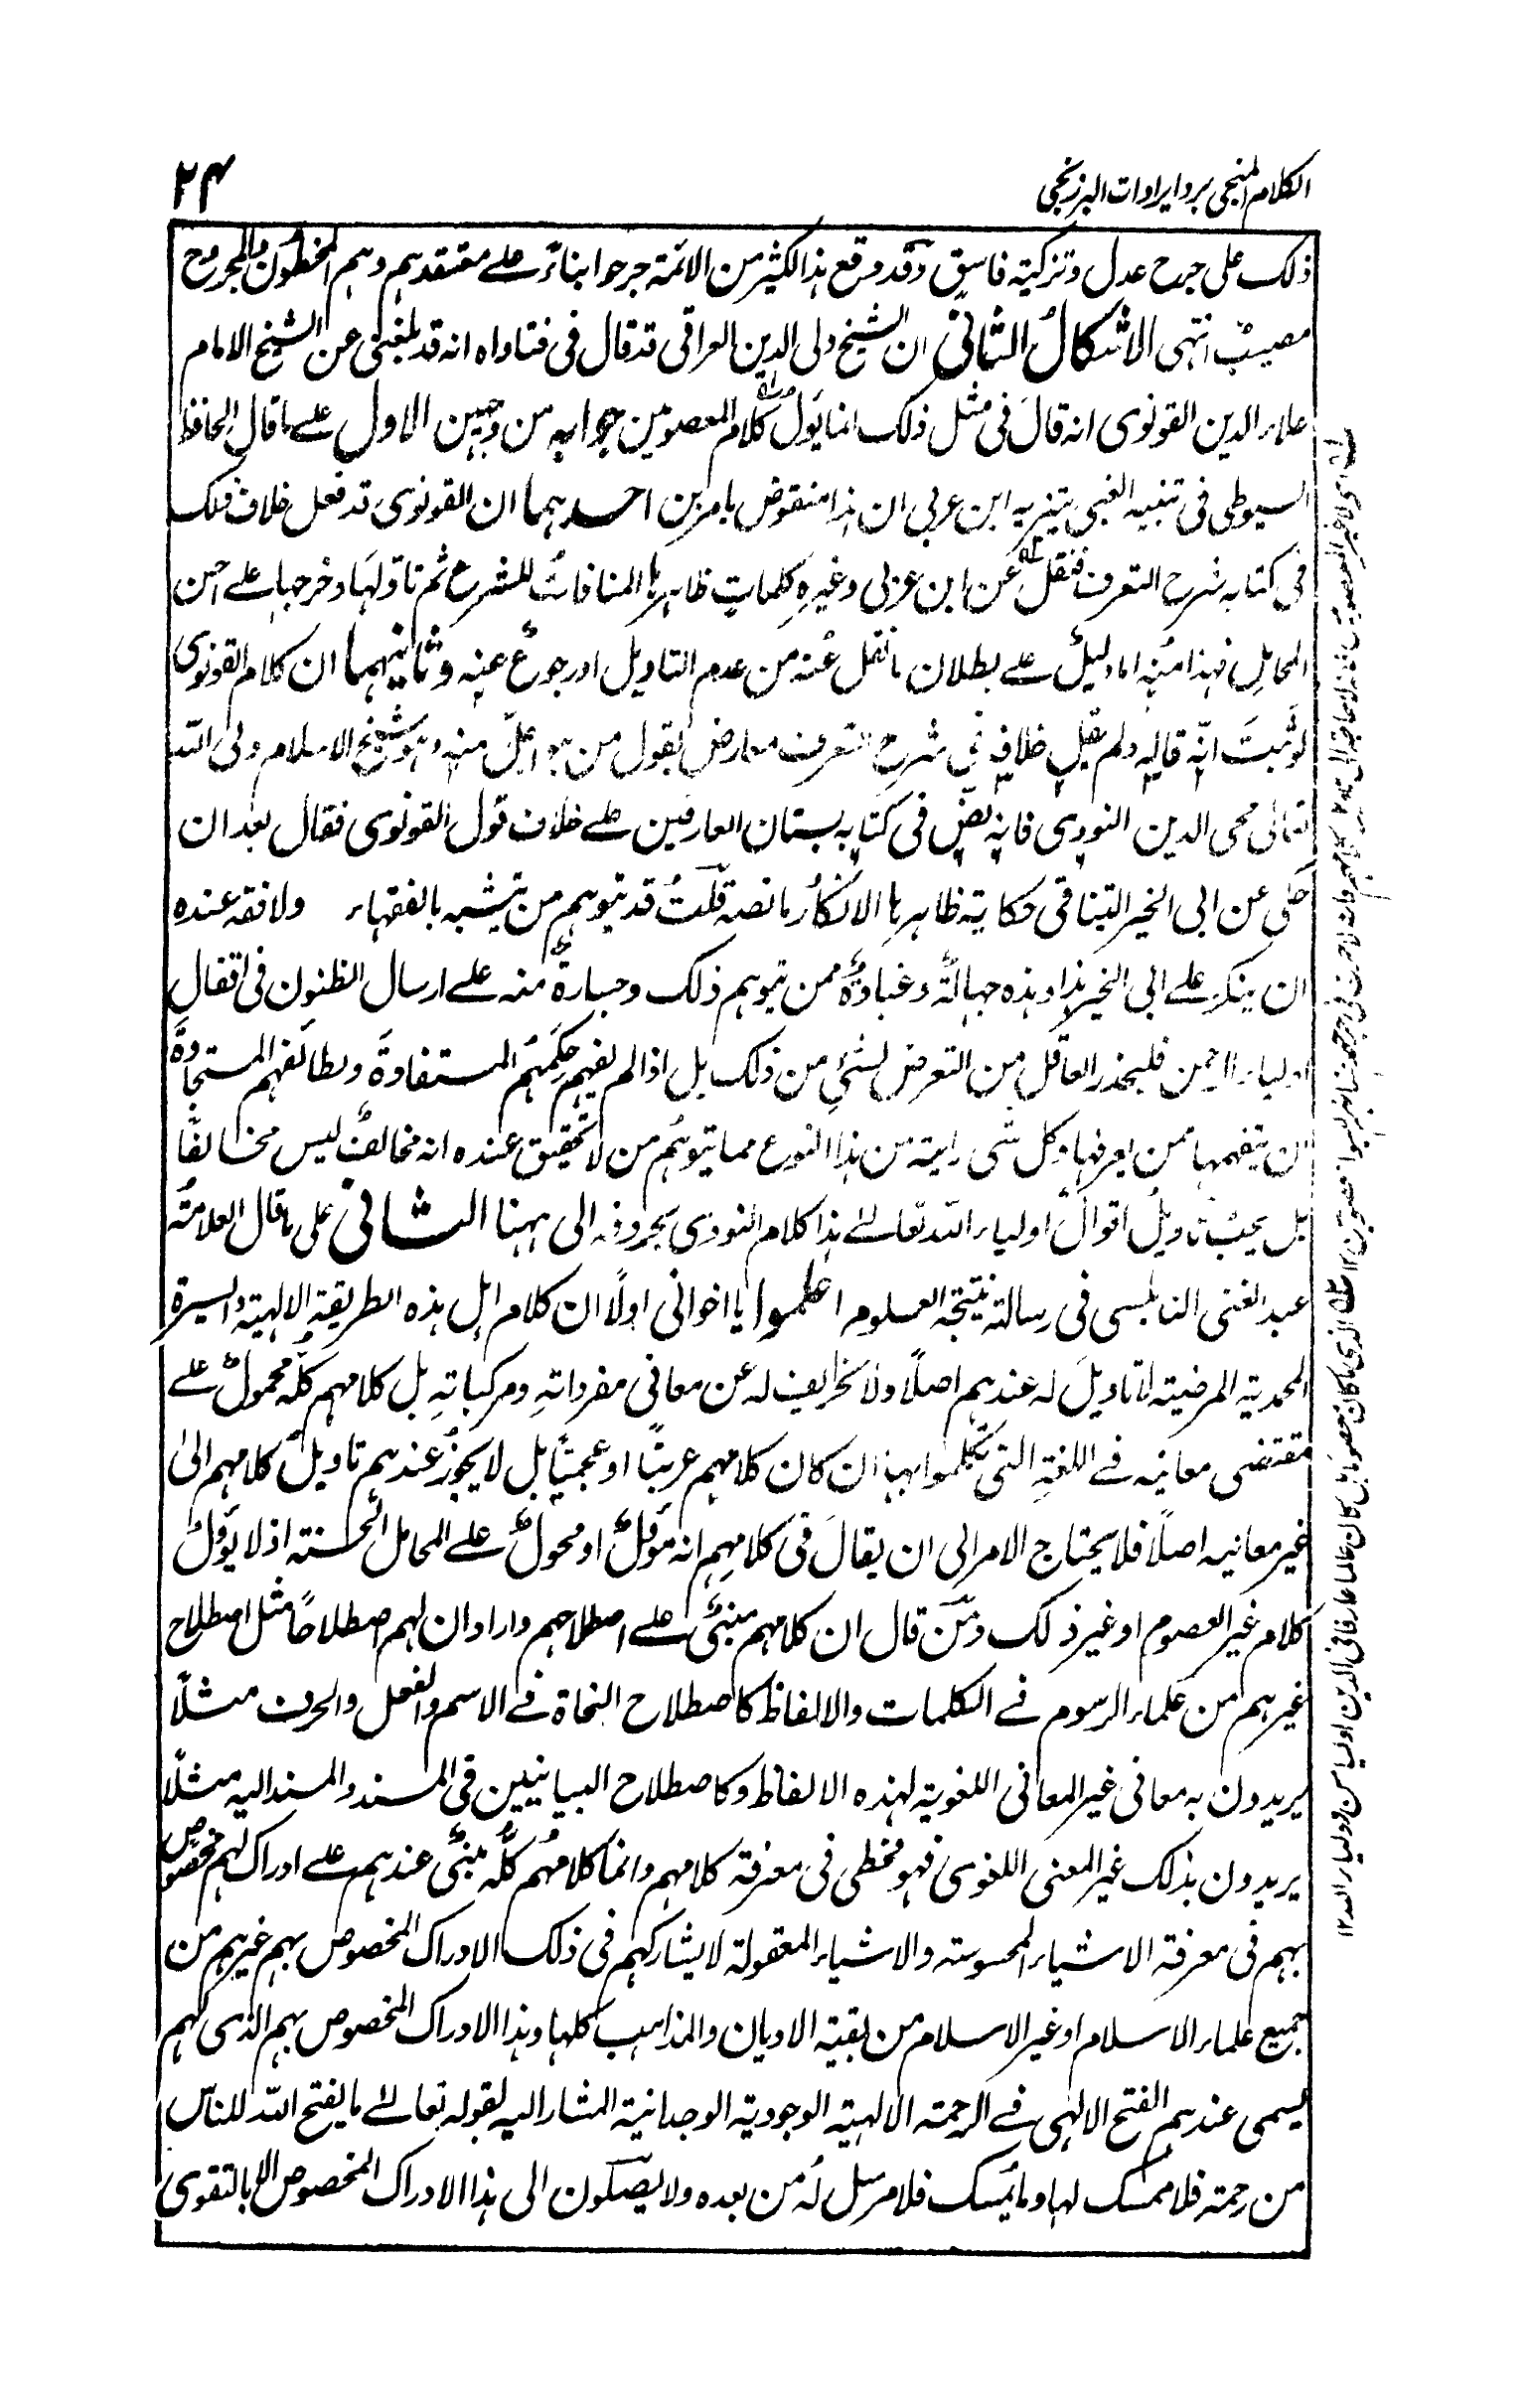 الكلام المنجى برد ايرادات البرزنجى
٢٤
ذلك على جرح عدل وتزكية فاسق وقد وقع هذا لكثير من الائمة جرحوا بناءً على معتقدهم وهم المخطئون والمجروح
مصيبٌ انتهى الاشكال الثانى ان الشيخ ولى الدين العراقى قد قال فى فتاواه انه قد بلغنى عن الشيخ الامام
علاء الدين القونوى انه قال فى مثل ذلك انما يؤل كلام المعصومين جوابه من وجهين الاول على ما قال الحافظ
السيوطى فى تنبيه الغبى بتنزيه ابن عربى ان هذا منقوض بامرين احدهما ان القونوى قد فعل خلاف ذلك
فى كتابه شرح التعرف فنقل عن ابن عربى وغيره كلماتٍ ظاهرها المنافاتُ للشرع ثم تاولها وخرجها على احسن
المحامل فهذا منه اما دليلٌ على بطلان ما نقل عنه من عدم التاويل او رجوعٌ عنه وثانيهما ان كلام القونوى
لو ثبت انه قاله ولم يقل خلافه فى شرح التعرف معارض بقول من هو اجلّ منه وهو شيخ الاسلام ولى الله
تعالى محى الدين النووى فانه نص فى كتابه بستان العارفين على خلاف قول القونوى فقال بعد ان
حكى عن ابى الخير التيناتى حكاية ظاهرها الانكار ما نصه قلت قد يتوهم من يتشبه بالفقهاء ولا فقه عنده
ان ينكر على ابى الخير هذا وهذه جهالةٌ وغباوةٌ ممن يتوهم ذلك وجسارةٌ منه على ارسال الظنون فى افعال
اولياء الرحمن فليحذر العاقل من التعرض لشئ من ذلك بل اذا لم يفهم حكمهم المستفادة ولطائفهم المستجادة
ان يتفهمها ممن يعرفها وكل شى رايته من هذا النوع مما يتوهم من لا تحقيق عنده انه مخالفٌ ليس مخالفًا
بل يجب تاويل اقوال اولياء الله تعالى هذا كلام النووى بحروفه الى ههنا الثانى على ما قال العلامة
عبد الغنى النابلسى فى رسالة نتيجة العلوم اعلموا يا اخوانى اولًا ان كلام اهل هذه الطريقة الالهية والسيرة
المحمدية المرضية لا تاويل له عندهم اصلًا ولا تحريف له عن معانى مفرداتهِ ومركباتهِ بل كلامهم كلّه محمولٌ على
مقتضى معانيه فى اللغة التى تكلموا بها ان كان كلامهم عربيًا او عجميًا بل لا يجوز عندهم تاويل كلامهم الى
غير معانيه اصلًا فلا يحتاج الامر الى ان يقال فى كلامهم انه مؤلٌ او محمولٌ على المحامل الحسنة اذ لا يؤل
كلام غير المعصوم او غير ذلك ومن قال ان كلامهم مبنىٌ على اصطلاحهم واراد ان لهم اصطلاحًا مثل اصطلاح
غيرهم من علماء الرسوم فى الكلمات والالفاظ كاصطلاح النحاة فى الاسم والفعل والحرف مثلًا
يريدون به معانى غير المعانى اللغوية لهذه الالفاظ وكاصطلاح البيانيين فى المسند والمسند اليه مثلًا
يريدون بذلك غير المعنى اللغوى فهو مخطى فى معرفة كلامهم وانما كلامهم كلّه مبنىٌ عندهم على ادراك لهم مخصوص
بهم فى معرفة الاشياء المحسوسة والاشياء المعقولة لا يشاركهم فى ذلك الادراك المخصوص بهم غيرهم من
جميع علماء الاسلام او غير الاسلام من بقية الاديان والمذاهب كلها وهذا الادراك المخصوص بهم الذى لهم
يسمى عندهم الفتح الالهى فى الرحمة الالهية الوجودية الوجدانية المشار اليه بقوله تعالى ما يفتح الله للناس
من رحمة فلا ممسك لها وما يمسك فلا مرسل له من بعده ولا يصلون الى هذا الادراك المخصوص الا بالتقوى
الذى ما كان معصوما بل كان عالما عارفا فى الدين او ليا من اولياء الله ١٢